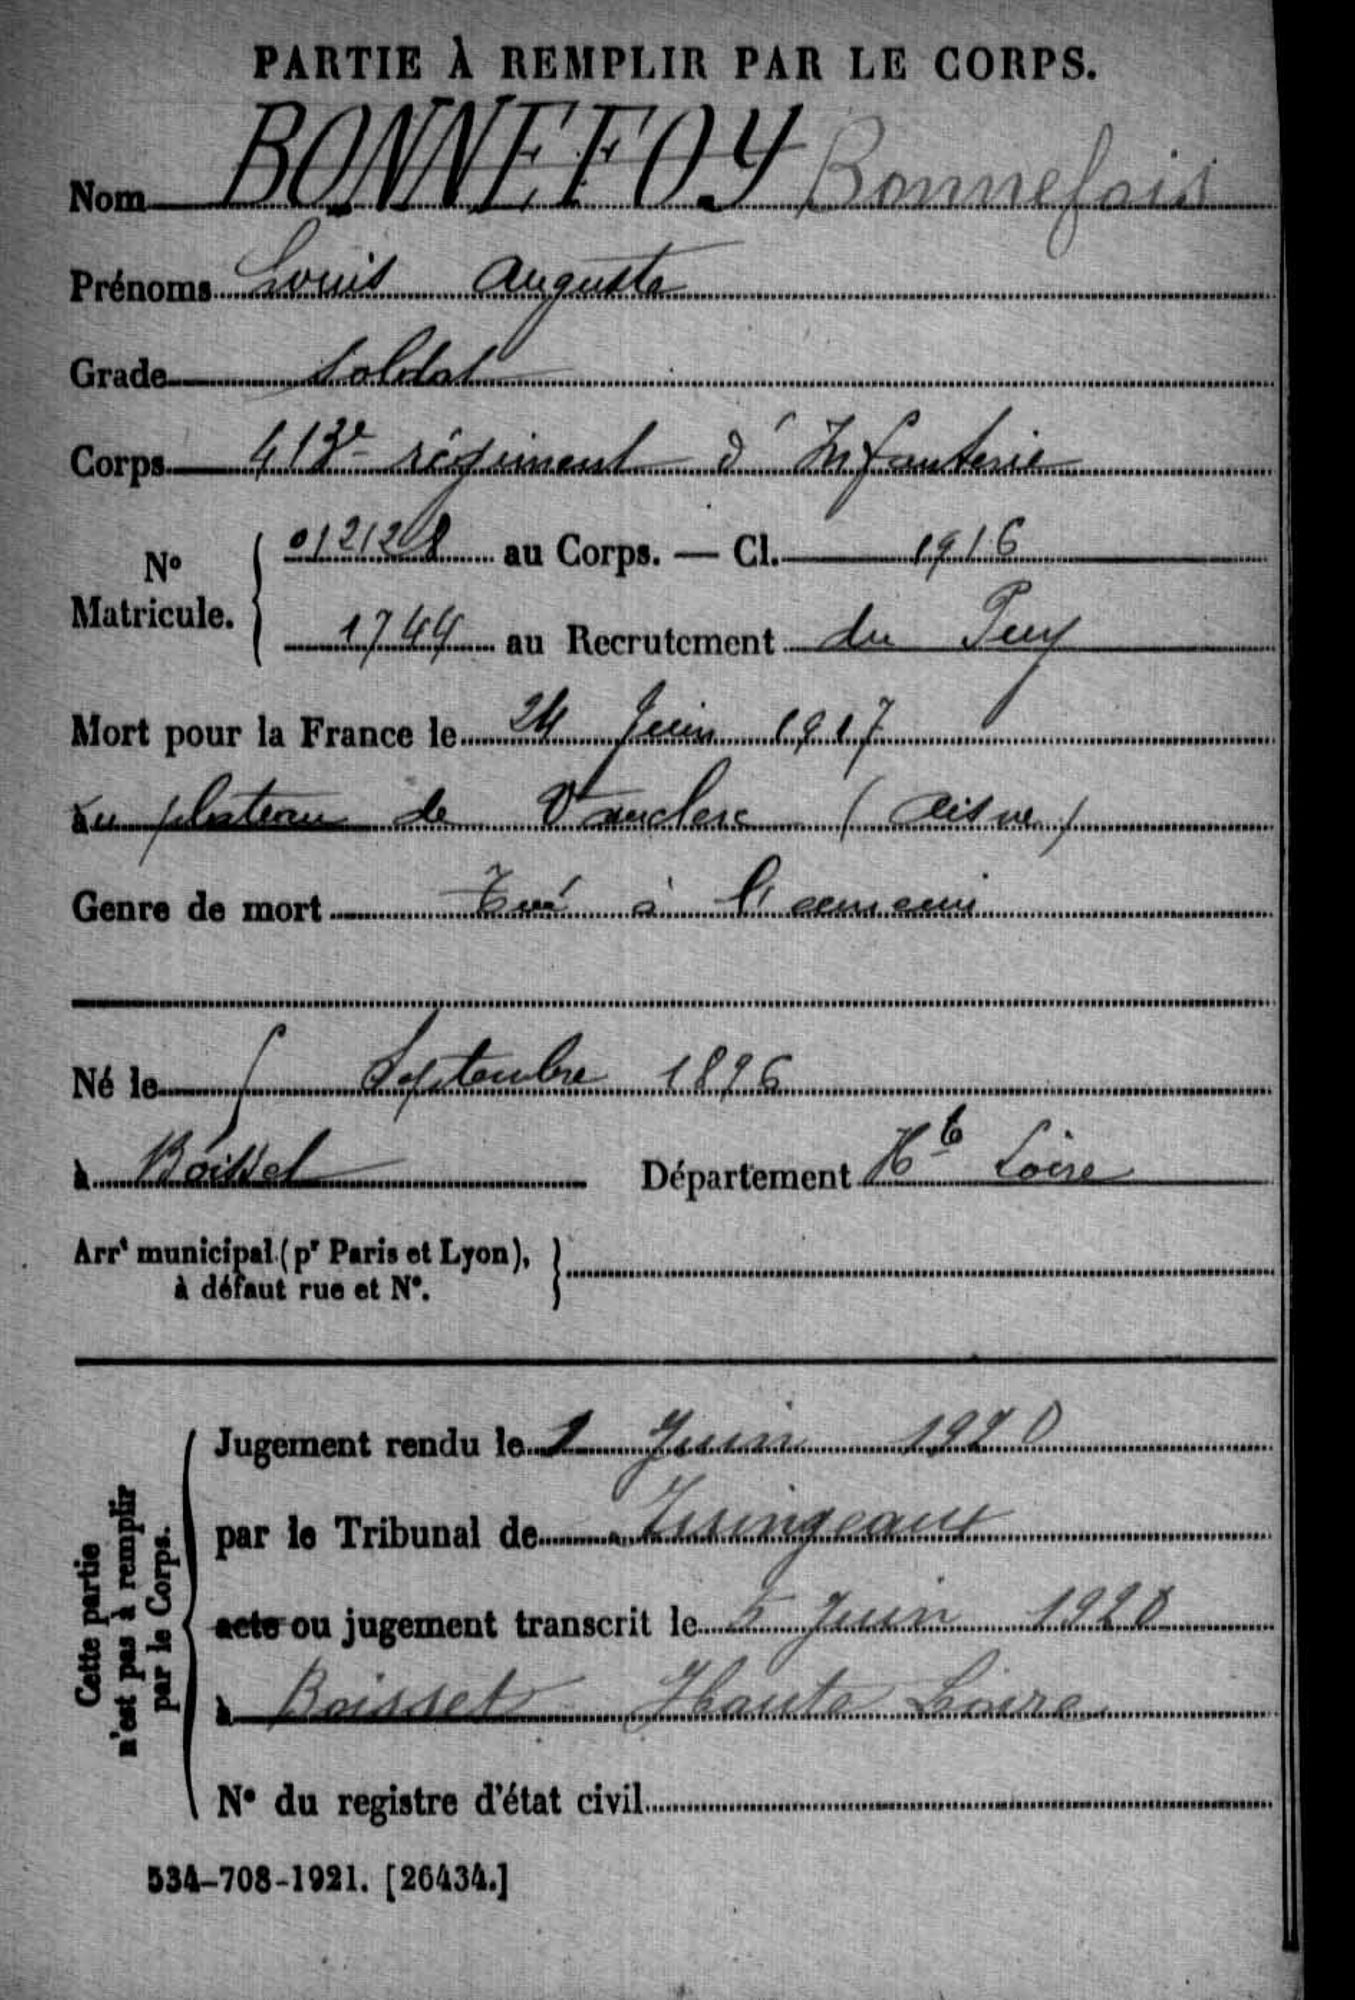 PARTIE À REMPLIR PAR LE CORPS.
Nom BONNEFOY Bonnefois
Prénoms Louis Auguste
Grade Soldat
Corps 413e régiment d'Infanterie
No Matricule. { 012128 au Corps. — Cl. 1916
1744 au Recrutement du Puy
Mort pour la France le 24 Juin 1917
au plateau de Vauclerc (Aisne)
Genre de mort Tué à l'ennemi
Né le Septembre 1896
à Boisset Département Hte Loire
Arrt municipal (pr Paris et Lyon), à défaut rue et No. }
Cette partie n'est pas à remplir par le Corps.
Jugement rendu le 1 Juin 1920
par le Tribunal de Yssingeaux
acte ou jugement transcrit le 5 Juin 1920
à Boisset Haute Loire
No du registre d'état civil
534-708-1921. [26434.]